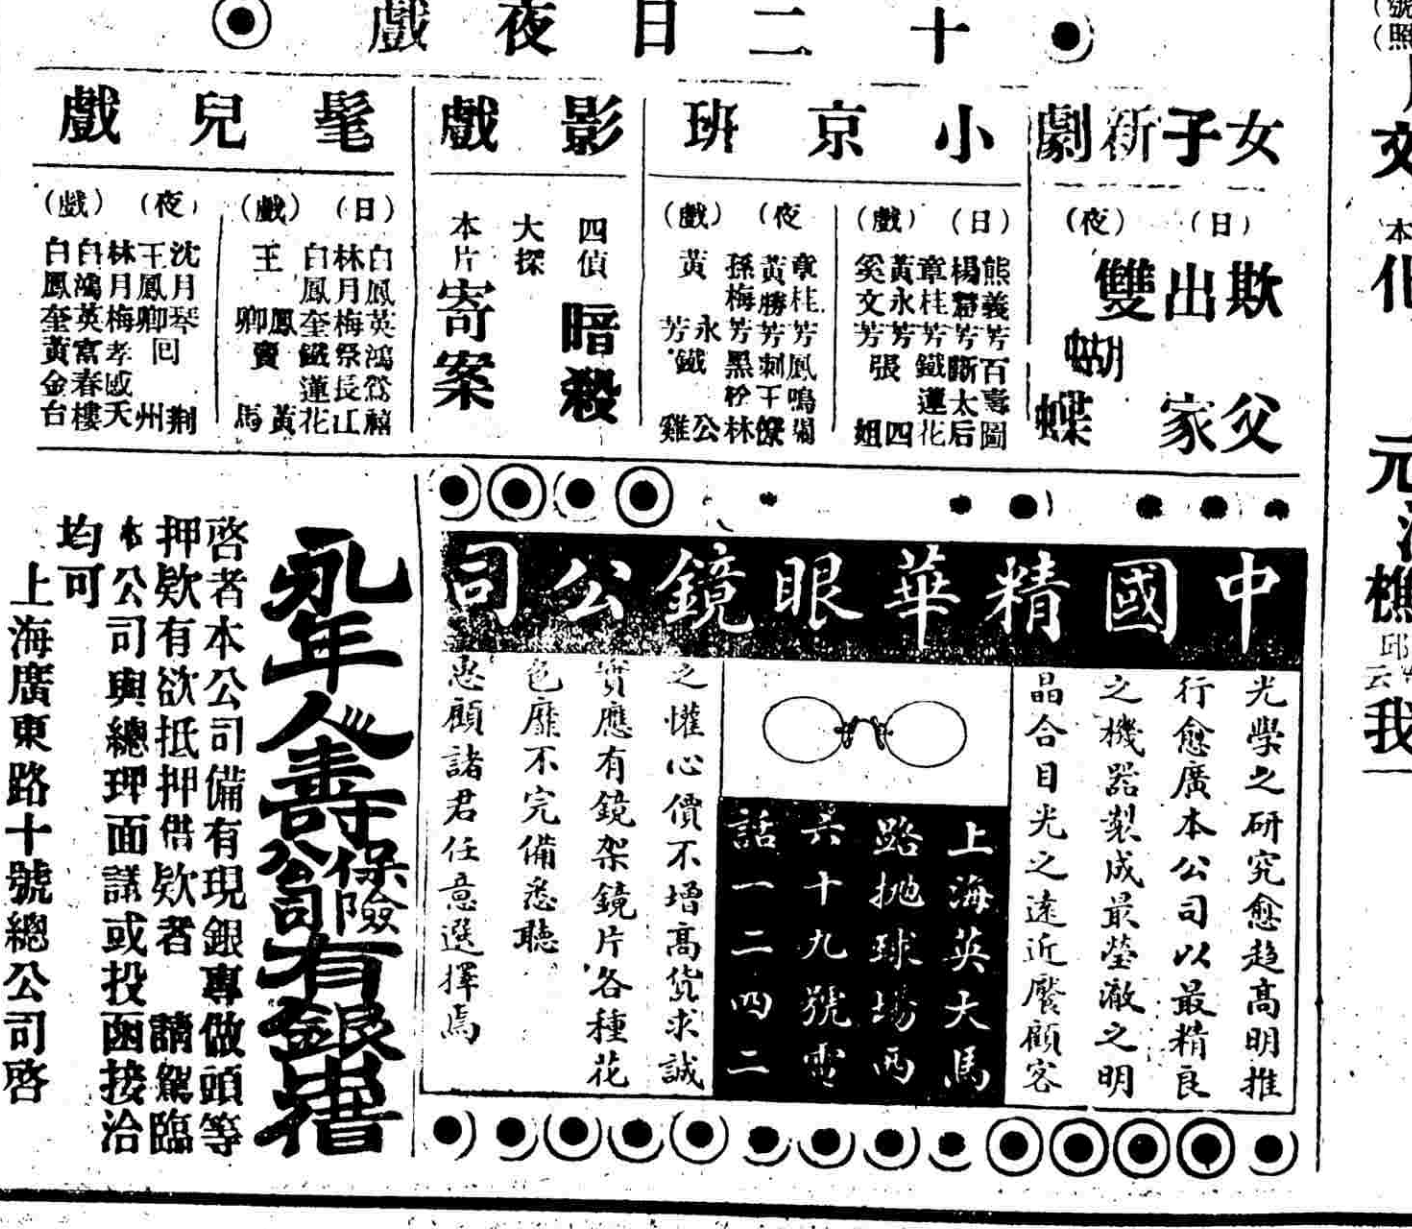 十二日夜戲
女子新劇
(日)
欺
出
父
家
(夜)
雙
蝴
蝶
小京班
(日)
(戲)
熊義芳
百壽圖
楊
芳
斷太后
章桂芳
鐵蓮花
黃永芳
張
奚文芳
四
姐
(夜)
(戲)
章桂芳
鳳鳴關
黃勝芳
刺王僚
孫梅芳
黑松林
永
公
黃
芳
鐵
雞
影戲
四偵
大探
暗殺
本片
寄案
髦兒戲
(日)
(戲)
白鳳英
鴻鸞禧
林月梅
祭長江
白鳳奎
鐵蓮花
鳳
黃
王
卿
賣
馬
(夜)
(戲)
沈月琴
荆
王鳳卿
回
州
林月梅
孝感天
白鴻英
富春樓
白鳳奎
黃金台
中國精華眼鏡公司
光學之研究愈趨高明推
行愈廣本公司以最精良
之機器製成最瑩澈之明
晶合目光之遠近饜顧客
之懽心價不增高貨求誠
實應有鏡架鏡片各種花
色靡不完備悉聽
惠顧諸君任意選擇焉
上海英大馬
路拋球場西
六十九號電
話一二四二
永年人壽保險公司有銀出借
啓者本公司備有現銀專做頭等
押欵有欲抵押借欵者 請駕臨
本公司與總理面議或投函接洽
均可
上海廣東路十號總公司啓
(號
(照
文
本
化
元
樵
邱
云
我